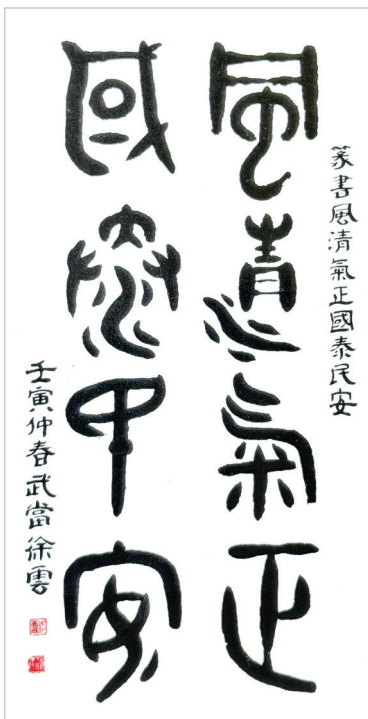 篆書風清氣正國泰民安
風清氣正
國泰民安
壬寅仲春武當徐雲